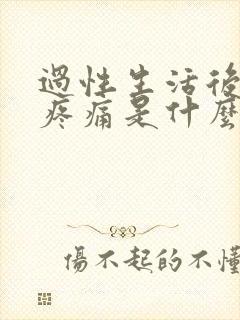 過性生活後
疼痛是什麼
傷不起的不懂